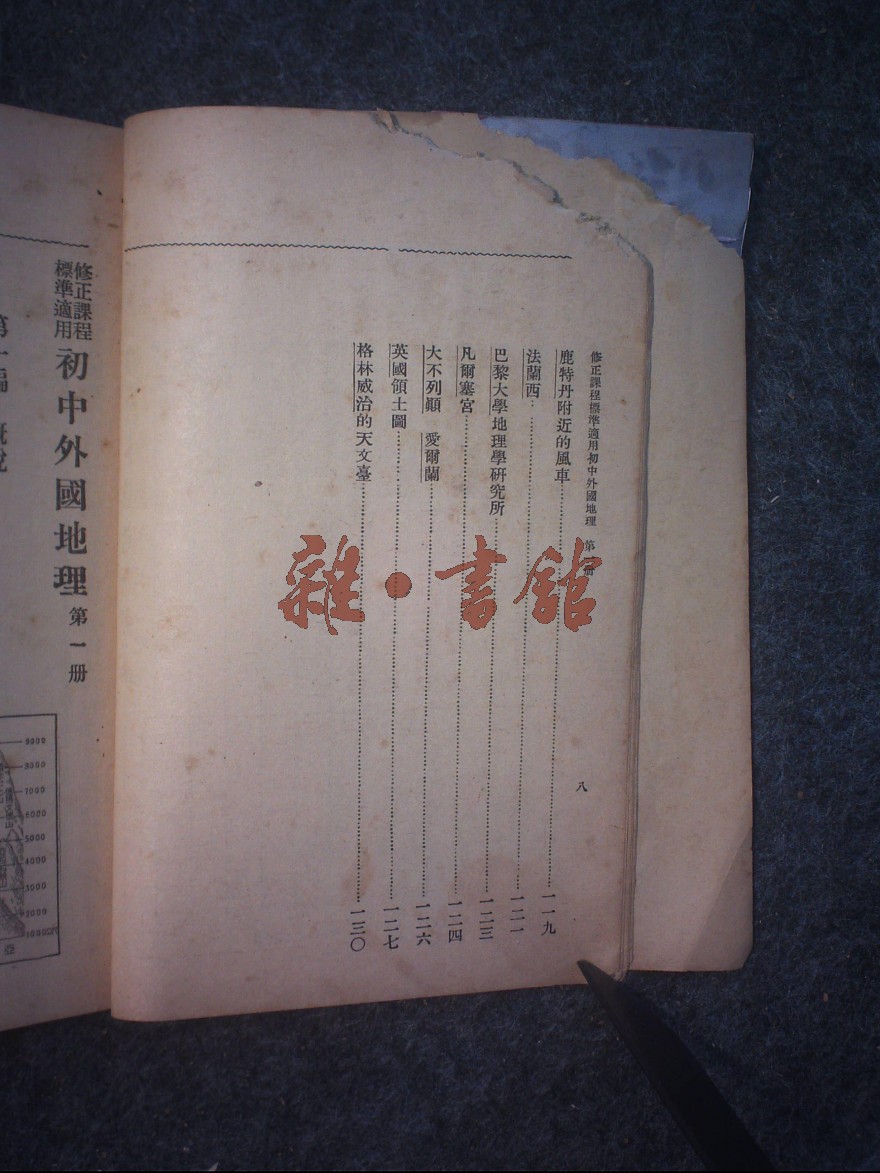 修正課程標準適用初中外國地理 第一册
八
鹿特丹附近的風車 一一九
法蘭西 一二一
巴黎大學地理學研究所 一二三
凡爾塞宮 一二四
大不列顚 愛爾蘭 一二六
英國領土圖 一二七
格林威治的天文臺 一三〇
雜·書舘
修正課程
標準適用
初中外國地理 第一册
第一編 概說
9000
8000
7000
6000
5000
4000
3000
2000
1000公尺
亞